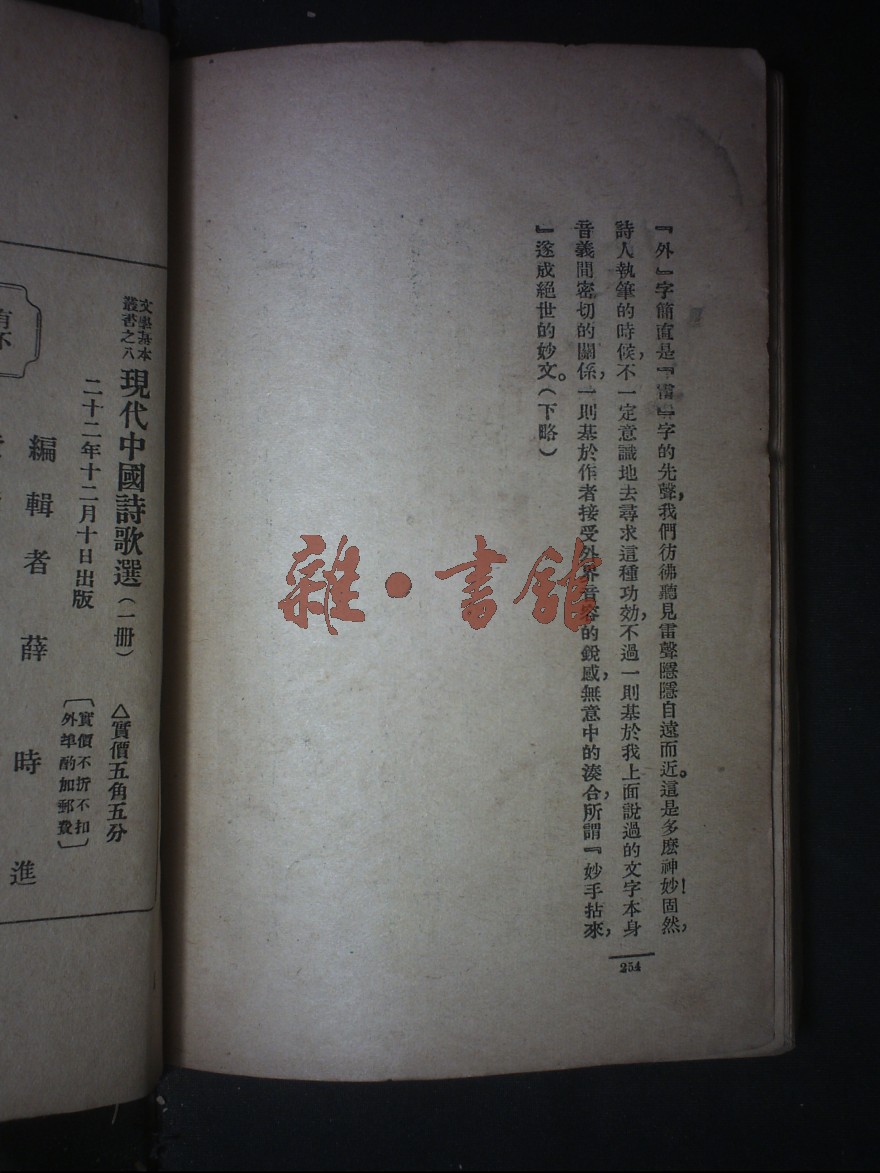 『外』字簡直是『雷』字的先聲，我們彷彿聽見雷聲隱隱自遠而近。這是多麽神妙！固然，
詩人執筆的時候，不一定意識地去尋求這種功効，不過一則基於我上面說過的文字本身
音義間密切的關係，一則基於作者接受外界音容的銳感，無意中的湊合，所謂『妙手拈來，
』遂成絕世的妙文。（下略）
254
雜·書館
文學基本
叢書之八
現代中國詩歌選（一册）
△實價五角五分
〔實價不折不扣
外埠酌加郵費〕
二十二年十二月十日出版
編輯者 薛時進
有不